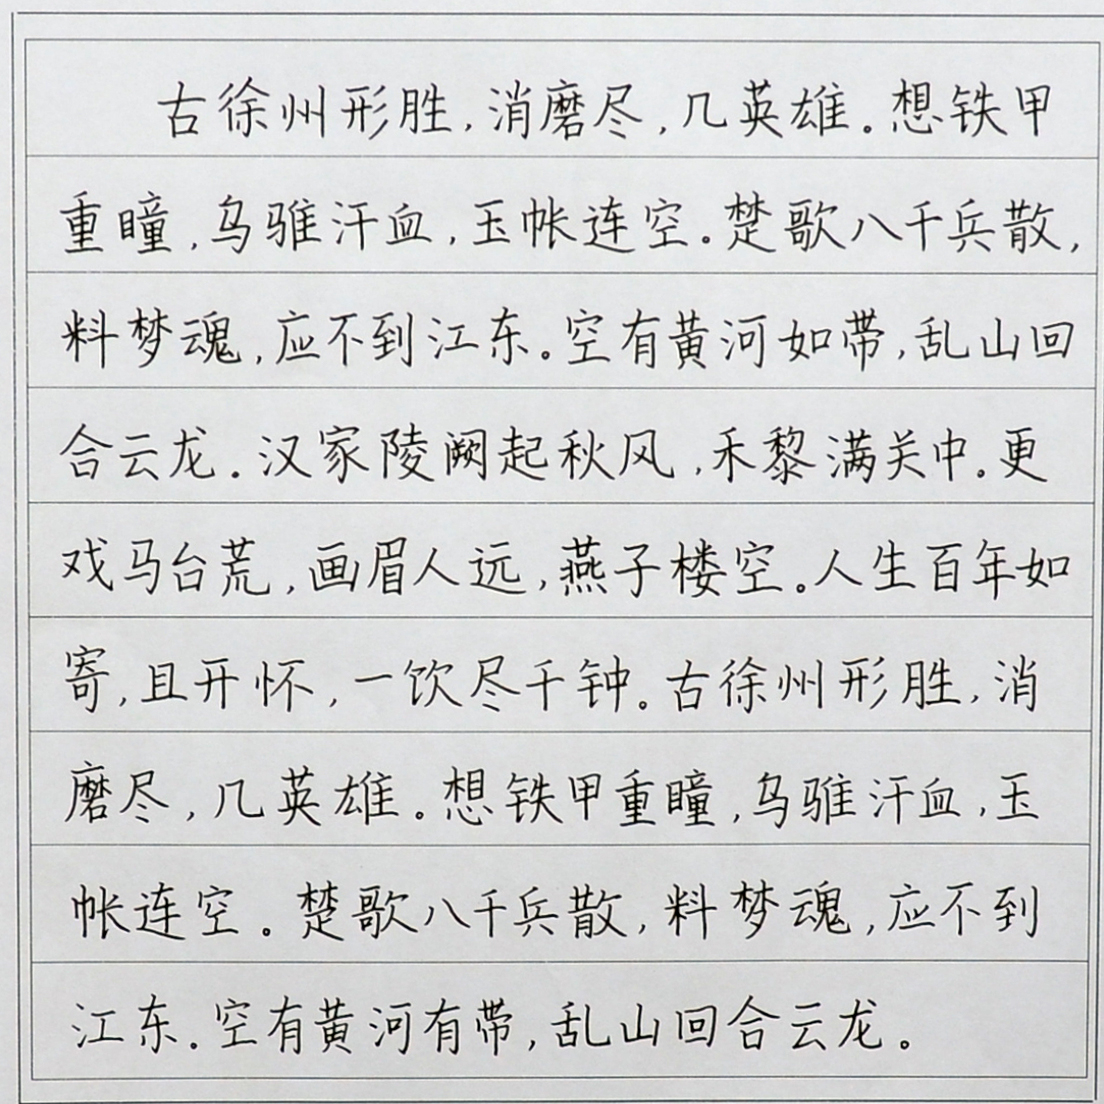 古徐州形胜,消磨尽,几英雄。想铁甲
重瞳,乌骓汗血,玉帐连空。楚歌八千兵散,
料梦魂,应不到江东。空有黄河如带,乱山回
合云龙。汉家陵阙起秋风,禾黎满关中。更
戏马台荒,画眉人远,燕子楼空。人生百年如
寄,且开怀,一饮尽千钟。古徐州形胜,消
磨尽,几英雄。想铁甲重瞳,乌骓汗血,玉
帐连空。楚歌八千兵散,料梦魂,应不到
江东。空有黄河有带,乱山回合云龙。